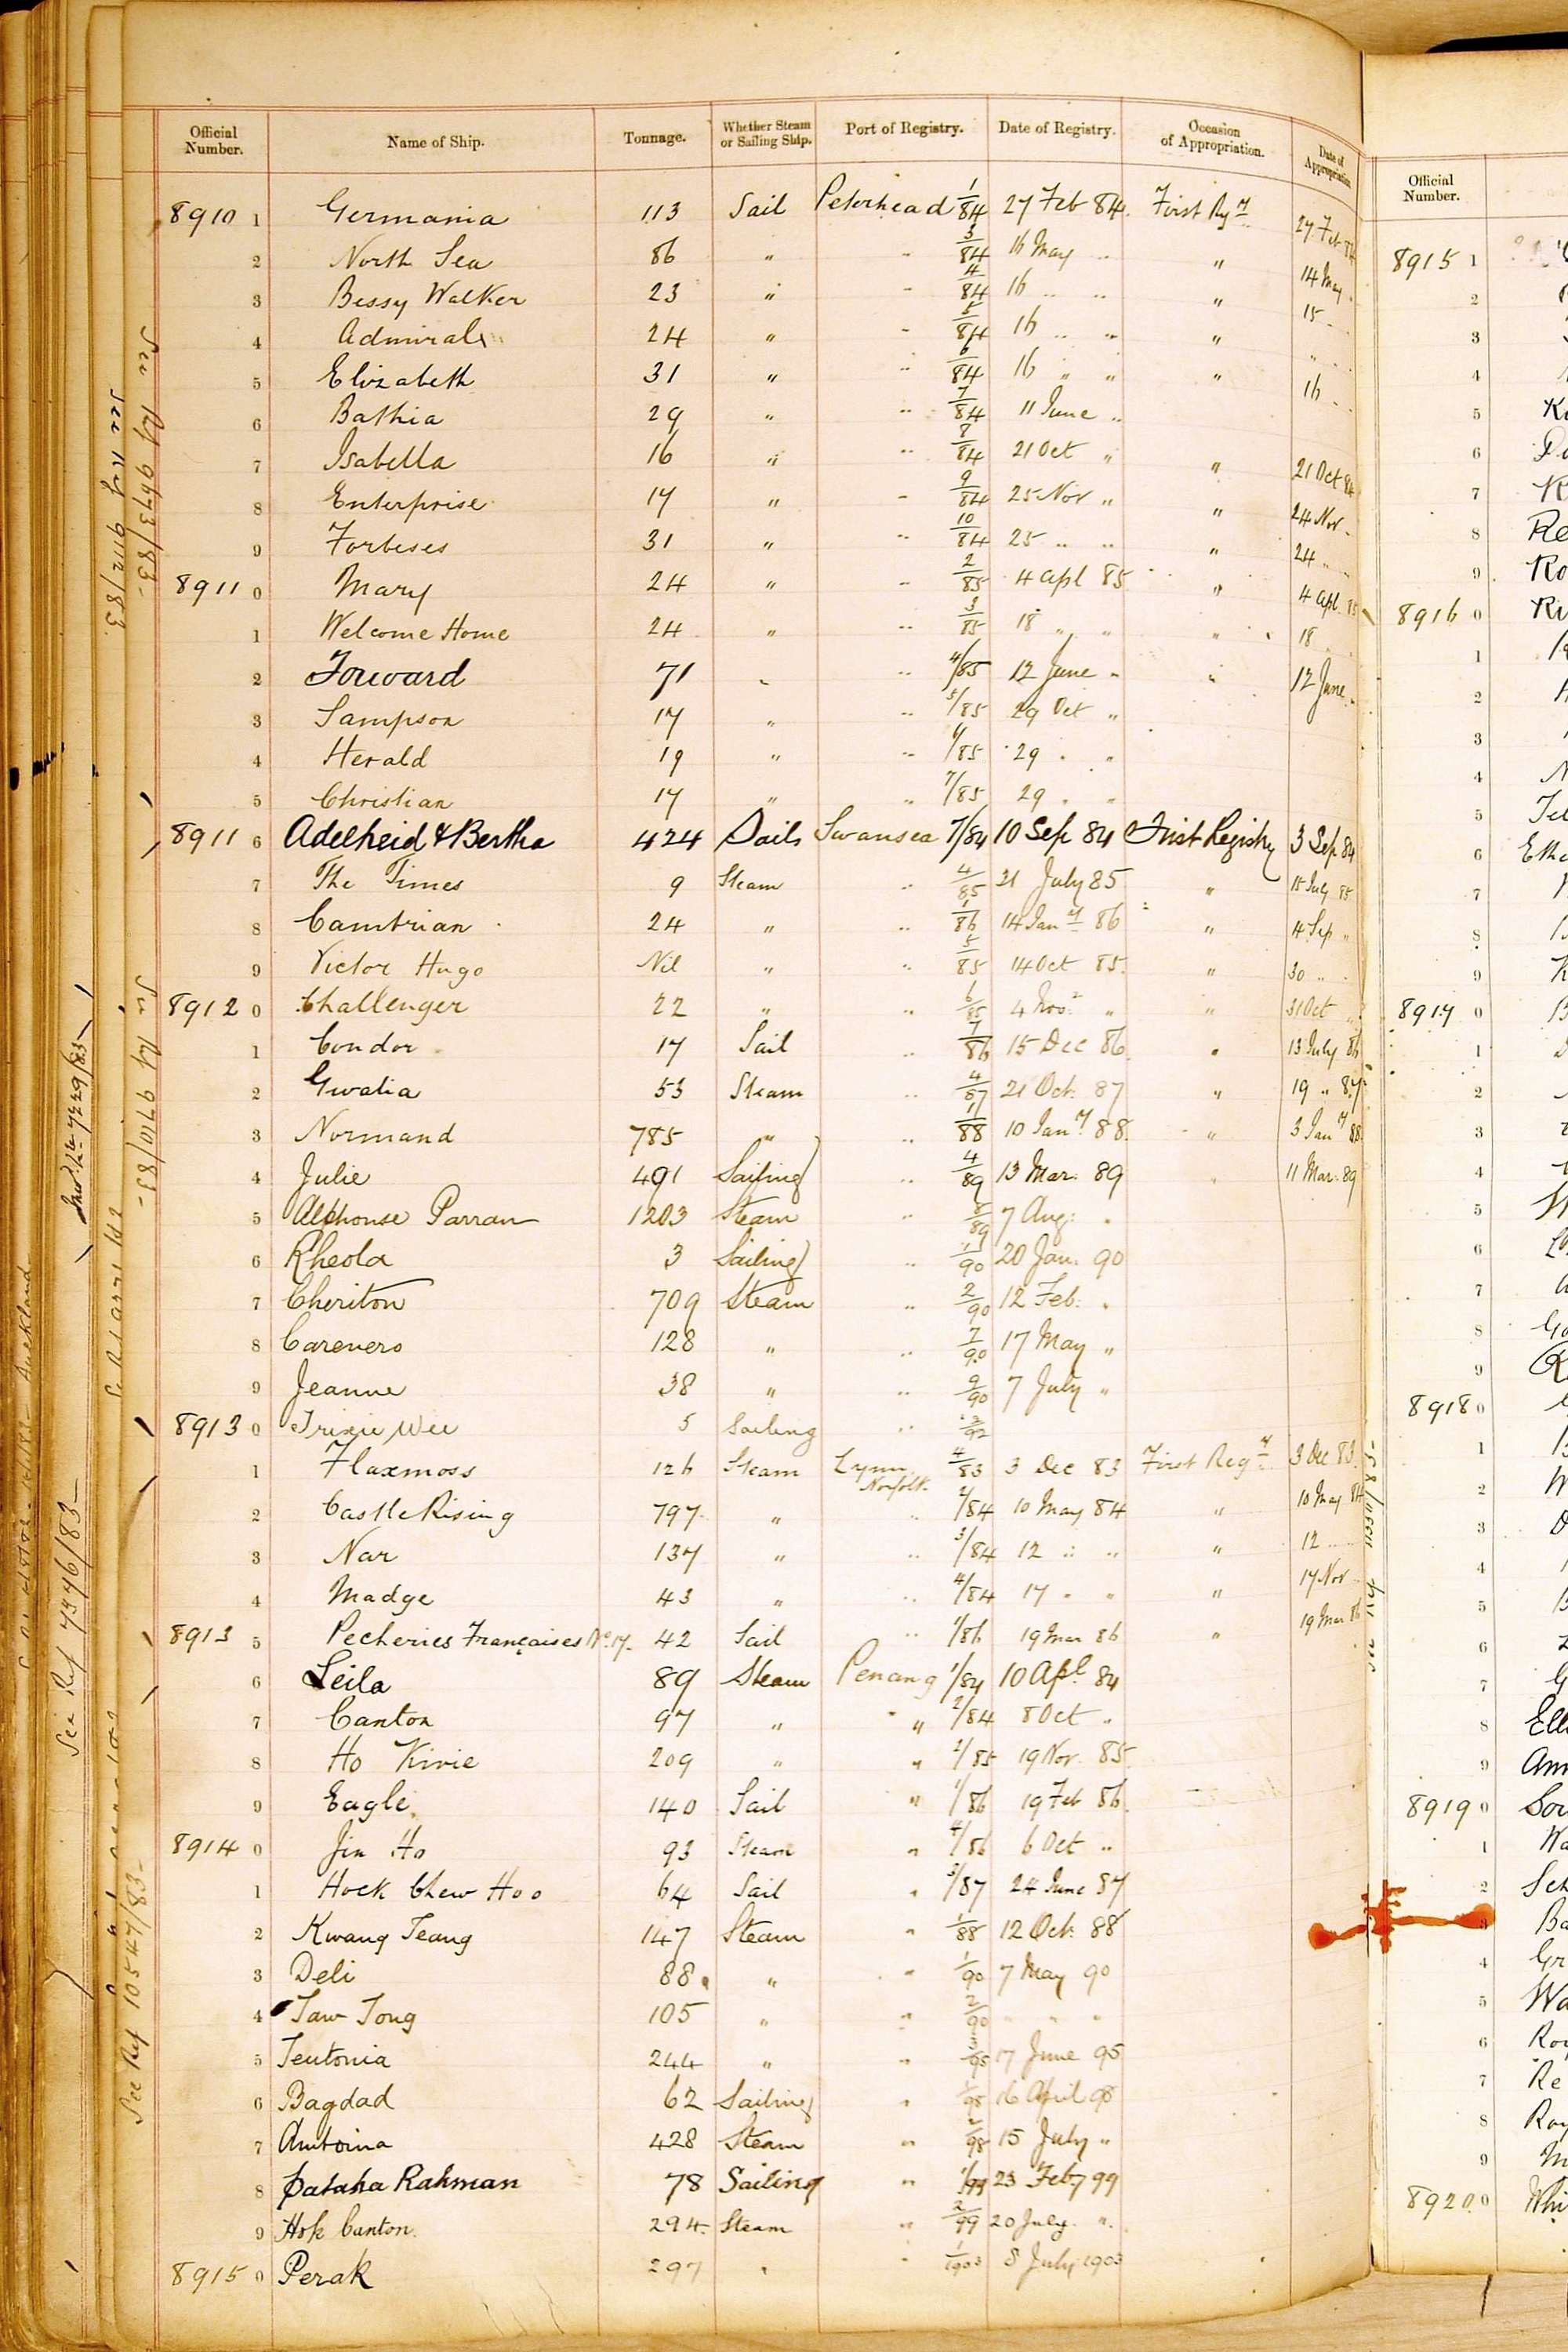 Official Number. Name of Ship. Tonnage. Whether Steam or Sailing Ship. Port of Registry. Date of Registry. Occasion of Appropriation. Date of Appropriation
8910 1 Germania 113 Sail Peterhead 1/84 27 Feb 84 First Rgy 27 Feb 84
2 North Sea 86 " " 3/84 16 May " " 14 May
3 Bessy Walker 23 " " 4/84 16 " " " 15 "
4 Admiral 24 " " 5/84 16 " " " "
5 Elizabeth 31 " " 6/84 16 " " " 16 "
6 Bathia 29 " " 7/84 11 June "
7 Isabella 16 " " 8/84 21 Oct " " 21 Oct 84
8 Enterprise 17 " " 9/84 25 Nov " " 24 Nov
9 Forbeses 31 " " 10/84 25 " " " 24 "
8911 0 Mary 24 " " 2/85 4 Apl 85 " 4 Apl 85
1 Welcome Home 24 " " 3/85 18 " " " 18
2 Forward 71 " " 4/85 12 June " " 12 June
3 Sampson 17 " " 5/85 29 Oct "
4 Herald 19 " " 6/85 29 " "
5 Christian 17 " " 7/85 29 " "
8911 6 Adelheid & Bertha 424 Sails Swansea 7/84 10 Sep 84 First Registry 3 Sep 84
7 The Times 9 Steam " 4/85 21 July 85 " 15 July 85
8 Cambrian 24 " " 1/86 14 Jany 86 " 4 Sep "
9 Victor Hugo Nil " " 5/85 14 Oct 85 " 30 "
8912 0 Challenger 22 " " 6/85 4 Nov " " 31 Oct "
1 Condor 17 Sail " 7/86 15 Dec 86 " 13 July 86
2 Gwalia 53 Steam " 4/87 21 Oct. 87 " 19 " 87
3 Normand 785 " " 1/88 10 Jany 88 " 3 Jany 88
4 Julie 491 Sailing " 4/89 13 Mar. 89 " 11 Mar. 89
5 Alphonse Parran 1203 Steam " 8/89 7 Aug: "
6 Rheola 3 Sailing " 1/90 20 Jan. 90
7 Cheriton 709 Steam " 2/90 12 Feb. "
8 Carenero 128 " " 7/90 17 May "
9 Jeanne 38 " " 9/90 7 July "
8913 0 Trixie Wee 5 Sailing "
1 Flaxmoss 126 Steam Lynn Norfolk 4/83 3 Dec 83 First Regy 3 Dec 83
2 Castle Rising 797 " " 2/84 10 May 84 " 10 May 84
3 Nar 137 " " 3/84 12 " " " 12 "
4 Madge 43 " " 4/84 17 " " " 17 Nov
8913 5 Pecheries Françaises No. 17. 42 Sail " 1/86 19 Mar 86 " 19 Mar 86
6 Leila 89 Steam Penang 1/84 10 Apl. 84
7 Canton 97 " " 2/84 8 Oct "
8 Ho Kwie 209 " " 2/85 19 Nov. 85
9 Eagle 140 Sail " 1/86 19 Feb 86
8914 0 Jin Ho 93 Steam " 4/86 6 Oct "
1 Hock Chew Hoo 64 Sail " 3/87 24 June 87
2 Kwang Teang 147 Steam " 1/88 12 Oct. 88
3 Deli 88 " " 1/90 7 May 90
4 Taw Tong 105 " " 2/90 " " "
5 Teutonia 244 " " 3/95 17 June 95
6 Bagdad 62 Sailing " 1/98 16 April 98
7 Amboina 428 Steam " 2/98 15 July "
8 Pataha Rahman 78 Sailing " 1/99 23 Feby 99
9 Hok Canton 294 Steam " 2/99 20 July "
8915 0 Perak 297 " " 1/1903 8 July 1903
See Rf 9673/83
See Reg 9112/83
See Rf 9710/83
See Ref 7376/83
See Ref 10547/83
Auckland
Official Number.
8915 1
2
3
4
5
6
7
8 Re
9
8916 0
1
2
3
4
5
6
7
8
9
8917 0
1
2
3
4
5
6
7
8
9
8918 0
1
2
3
4
5
6
7
8
9
8919 0
1
2
3
4
5
6
7
8
9
8920 0